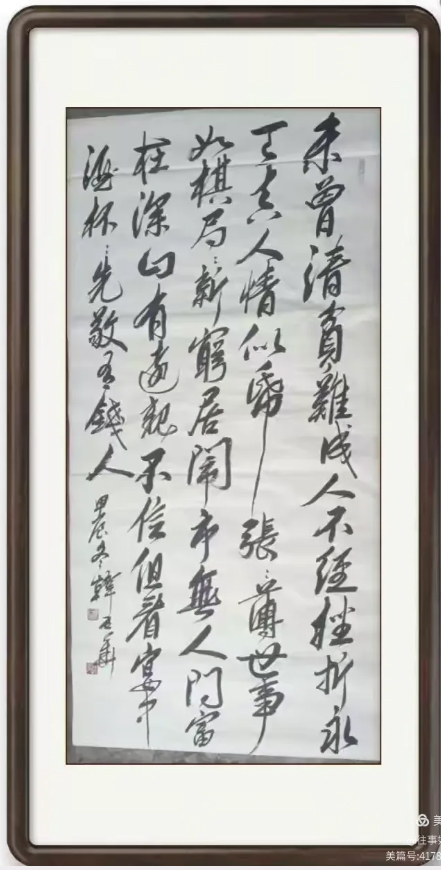 未曾清貧難成人不經挫折永
天真人情似帋張〻薄世事
如棋局〻新窮居鬧市無人問富
在深山有遠親不信但看宴中
酒杯〻先敬有錢人
甲辰冬韓
美
往事如
美篇号:4178